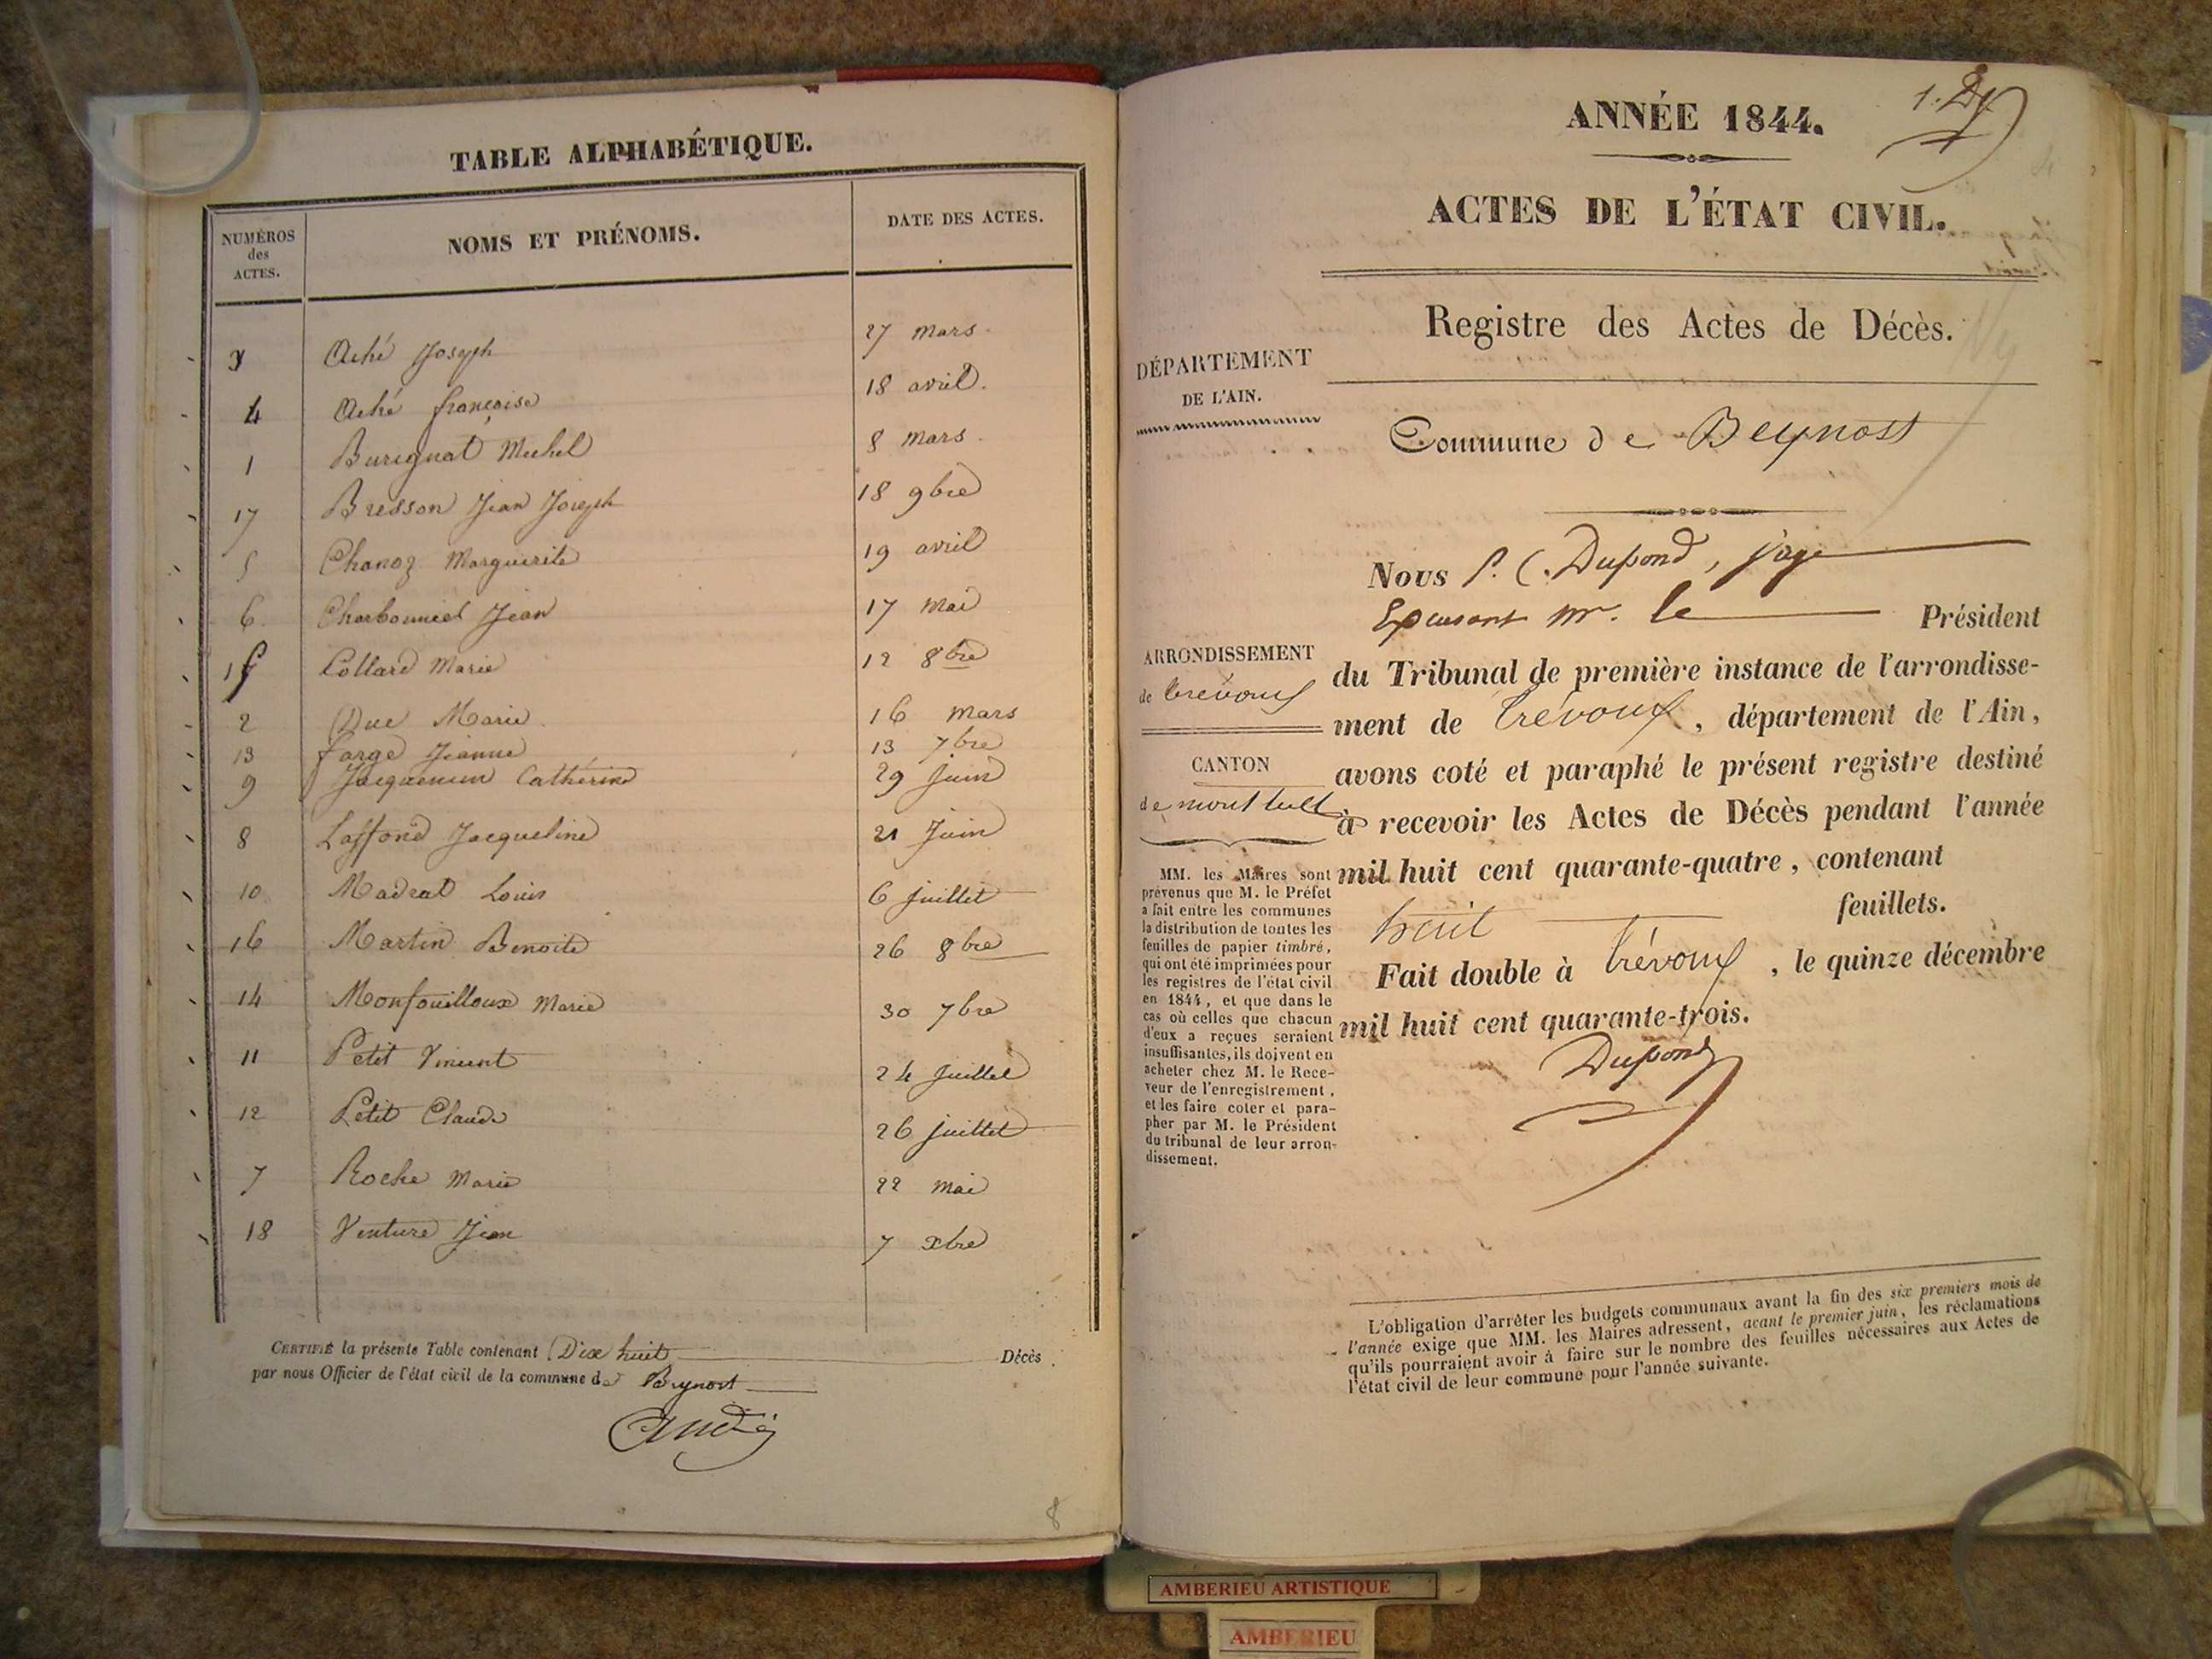 TABLE ALPHABÉTIQUE.
NUMÉROS des ACTES. NOMS ET PRÉNOMS. DATE DES ACTES.
3 Aché Joseph 27 mars
4 Aché françoise 18 avril.
1 Burignat Michel 8 mars
17 Bresson Jean Joseph 18 9bre
5 Chanoz Marguerite 19 avril
6 Charbonniel Jean 17 Mai
Collard Marie 12 8bre
2 Duc Marie 16 mars
13 farge Jeanne 13 7bre
9 Jacquemin Cathérine 29 Juin
8 Laffond Jacqueline 21 Juin
10 Madrat Louis 6 juillet
16 Martin Benoite 26 8bre
14 Monfouilloux Marie 30 7bre
11 Petit Vincent 24 Juillet
12 Petit Claude 26 juillet
7 Roche Marie 22 mai
18 Venture Jean 7 xbre
CERTIFIÉ la présente Table contenant Dix huit Décès
par nous Officier de l'état civil de la commune de Beynost
André
8
ANNÉE 1844.
ACTES DE L'ÉTAT CIVIL.
Registre des Actes de Décès.
DÉPARTEMENT
DE L'AIN.
Commune de Beynost
Nous P. C. Dupond, juge
Mr. le Président
ARRONDISSEMENT
de trévoux
du Tribunal de première instance de l'arrondisse-
ment de trévoux, département de l'Ain,
CANTON
de montluel
avons coté et paraphé le présent registre destiné
à recevoir les Actes de Décès pendant l'année
mil huit cent quarante-quatre, contenant
huit feuillets.
Fait double à trévoux, le quinze décembre
mil huit cent quarante-trois.
Dupond
MM. les Maires sont
prévenus que M. le Préfet
a fait entre les communes
la distribution de toutes les
feuilles de papier timbré,
qui ont été imprimées pour
les registres de l'état civil
en 1844, et que dans le
cas où celles que chacun
d'eux a reçues seraient
insuffisantes, ils doivent en
acheter chez M. le Rece-
veur de l'enregistrement,
et les faire coter et para-
pher par M. le Président
du tribunal de leur arron-
dissement.
L'obligation d'arrêter les budgets communaux avant la fin des six premiers mois de
l'année exige que MM. les Maires adressent, avant le premier juin, les réclamations
qu'ils pourraient avoir à faire sur le nombre des feuilles nécessaires aux Actes de
l'état civil de leur commune pour l'année suivante.
AMBERIEU ARTISTIQUE
AMBERIEU